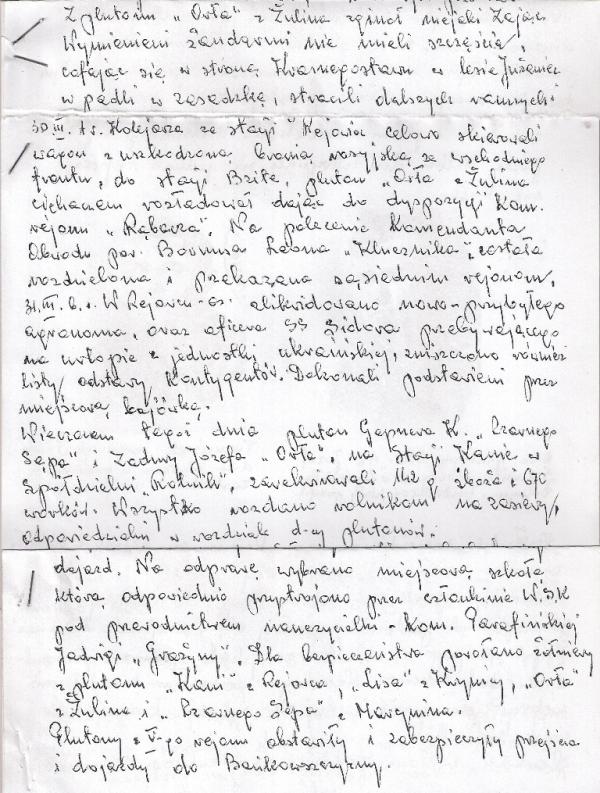 Z plutonu „Orła" z Żulina zginął niejaki Zając
Wymienieni żandarmi nie mieli szczęścia,
cofając się w stronę Krasnegostawu w lesie
w padli w zasadzkę, stracili dalszych rannych
30.III. br. Kolejarze ze stacji Rejowiec celowo skierowali
wagon z uszkodzoną bronią rosyjską ze wschodniego
frontu, do stacji Brite, pluton „Orła z Żulina
cichaczem rozładował dając do dyspozycji Kom.
rejonu „Rębacza". Na polecenie Komendanta
Obwodu por. Leona „Klucznika", została
rozdzielona i przekazana sąsiednim rejonom.
31.III. b.r. W Rejowcu-os. zlikwidowano nowo-przybyłego
agronoma, oraz oficera SS Sidora przebywającego
na urlopie z jednostki ukraińskiej, zniszczono również
listy odstawy Kontygentów. Dokonali podstawieni przez
miejscową bojówkę.
Wieczorem tegoż dnia pluton Gepnera K. „Czarnego
Sępa" i Zadury Józefa „Orła", na Stacji Kanie w
Spółdzielni „Rolnik", zarekwirowali 142 q zboża i 670
worków. Wszystko rozdano rolnikom na zasiewy,
odpowiedzialni w rozdziale d-cy plutonów.
dojazd. Na odprawę wybrano miejscową szkołę
którą odpowiednio przystrojono przez członkinie W.S.K
pod przewodnictwem nauczycielki - Kom. Parafińskiej
Jadwigi „Grażyny". Dla bezpieczeństwa powołano żołnierzy
z plutonu „Kani" z Rejowca, „Lisa" z Krynicy, „Orła"
z Żulina i „Czarnego Sępa" z Marynina.
Plutony z V-go rejonu obstawiły i zabezpieczyły przejścia
i dojazdy do Bańkowszczyzny.